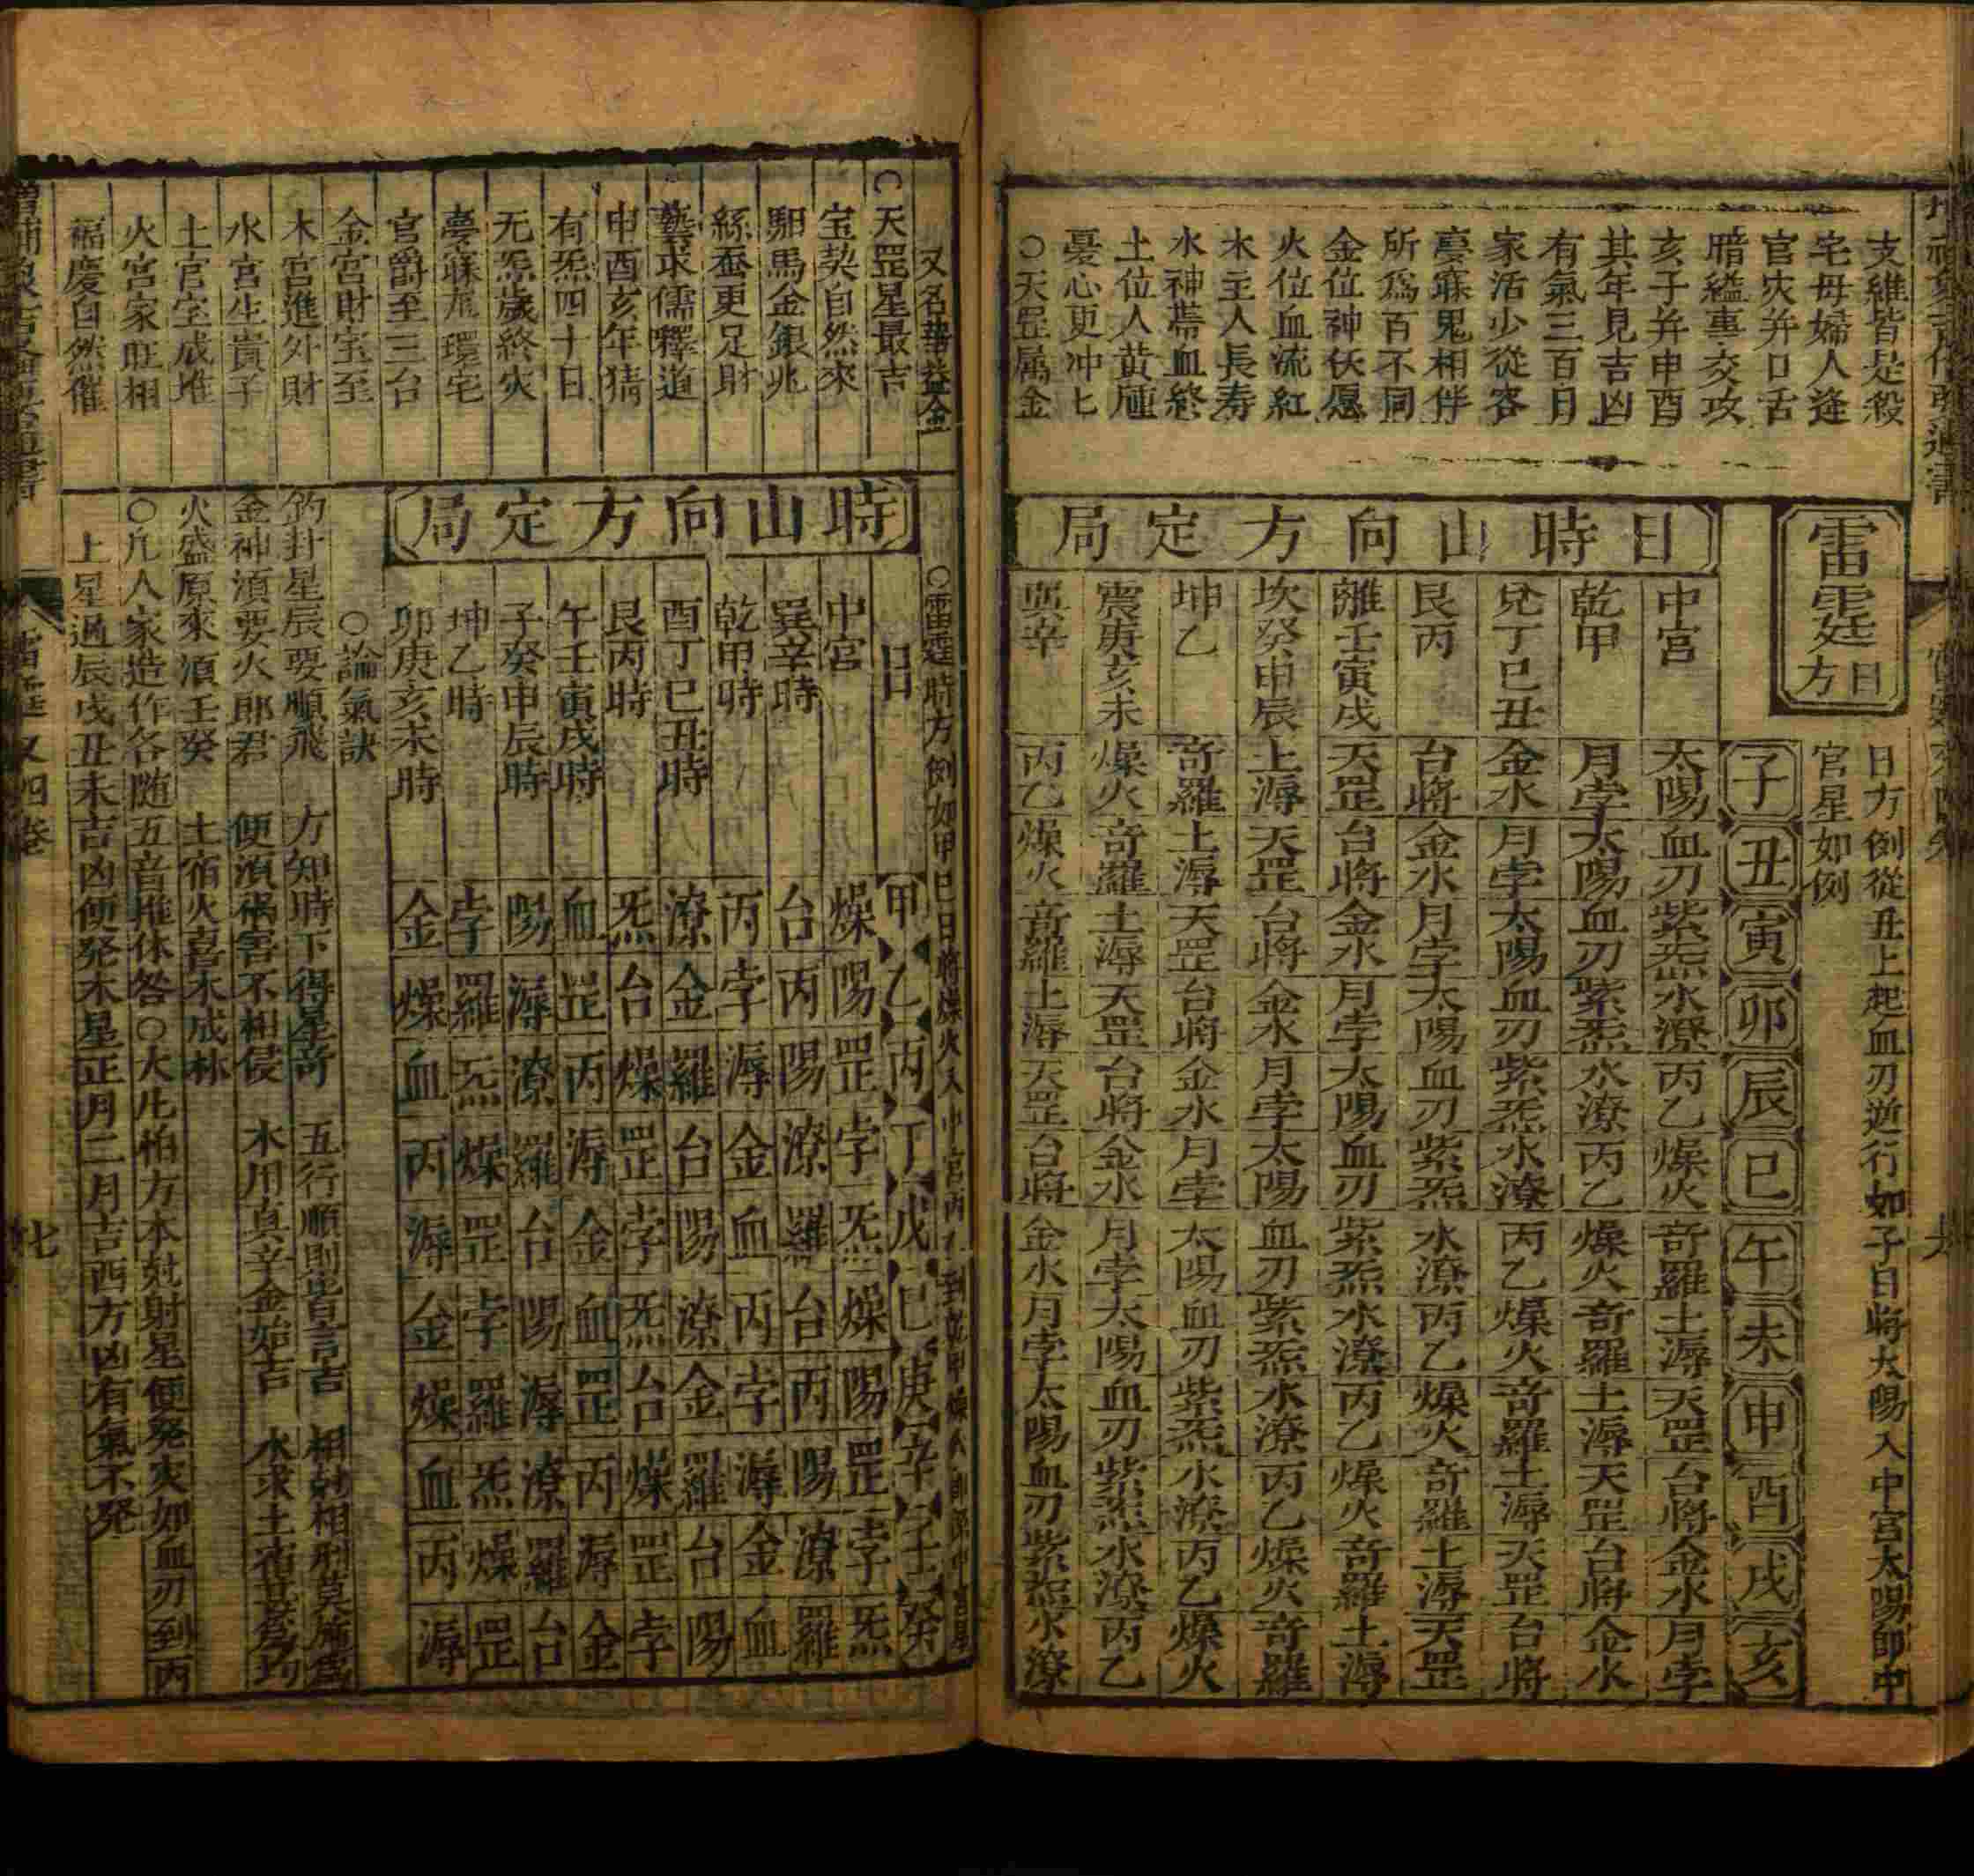 支維皆是殺
宅母婦人逢
官灾并口舌
暗縊事交攻
亥子并申酉
其年見吉凶
有氣三百日
家活少從容
夢寐鬼相伴
所為百不同
金位神伏愿
火位血流紅
木主人長寿
水神蔕血終
土位人黄腫
憂心更冲七
○天罡属金
雷霆日方
日方例從丑上起血刃逆行如子日將太陽入中宮太陽即中
官星如例
日時山向方定局
子丑寅卯辰巳午未申酉戌亥
中宮 太陽 血刃 紫炁 水潦 丙乙 燥火 奇羅 土潯 天罡 台將 金水 月孛
乾甲 月孛 太陽 血刃 紫炁 水潦 丙乙 燥火 奇羅 土潯 天罡 台將 金水
兌丁巳丑 金水 月孛 太陽 血刃 紫炁 水潦 丙乙 燥火 奇羅 土潯 天罡 台將
艮丙 台將 金水 月孛 太陽 血刃 紫炁 水潦 丙乙 燥火 奇羅 土潯 天罡
離壬寅戌 天罡 台將 金水 月孛 太陽 血刃 紫炁 水潦 丙乙 燥火 奇羅 土潯
坎癸申辰 土潯 天罡 台將 金水 月孛 太陽 血刃 紫炁 水潦 丙乙 燥火 奇羅
坤乙 奇羅 土潯 天罡 台將 金水 月孛 太陽 血刃 紫炁 水潦 丙乙 燥火
震庚亥未 燥火 奇羅 土潯 天罡 台將 金水 月孛 太陽 血刃 紫炁 水潦 丙乙
巽辛 丙乙 燥火 奇羅 土潯 天罡 台將 金水 月孛 太陽 血刃 紫炁 水潦
又名華盖金
○天罡星最吉
宝契自然來
駟馬金銀兆
絲蚕更足財
藝求儒釋道
申酉亥年猜
有炁四十日
无炁歲終灾
夢寐尫環宅
官爵至三台
金宮財宝至
木宮進外財
水宮生貴子
土宮宝成堆
火宮家旺相
福慶自然催
○雷霆時方例如甲巳日將燥火入中宮丙
時山向方定局
日 甲乙丙丁戊巳庚辛壬癸
中宮 燥陽罡孛炁燥陽罡孛炁
巽辛時 台丙陽潦羅台丙陽潦羅
乾甲時 丙孛潯金血丙孛潯金血
酉丁巳丑時 潦金羅台陽潦金羅台陽
艮丙時 炁台燥罡孛炁台燥罡孛
午壬寅戌時 血罡丙潯金血罡丙潯金
子癸申辰時 陽潯潦羅台陽潯潦羅台
坤乙時 孛羅炁燥罡孛羅炁燥罡
卯庚亥未時 金燥血丙潯金燥血丙潯
○論氣訣
釣卦星辰要順飛 方知時下得星奇 五行順則皆言吉 相尅相刑莫施為
金神湏要火郎君 便湏禍害不相侵 木用真辛金始吉 水求土宿
火盛原來湏壬癸 土宿火喜木成林
○凡人家造作各随五音推休咎○大凡柏方本尅射星便発灾如血刃到丙
上星過辰戌丑未吉凶便発木星正月二月吉西方凶有氣不発
又四卷
七